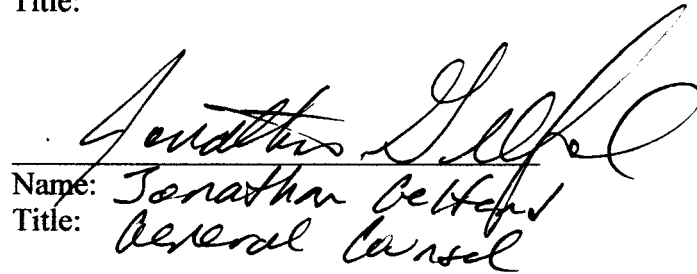 Title:
Jonathan Gelfand
Name: Jonathan Gelfand
Title: General Counsel